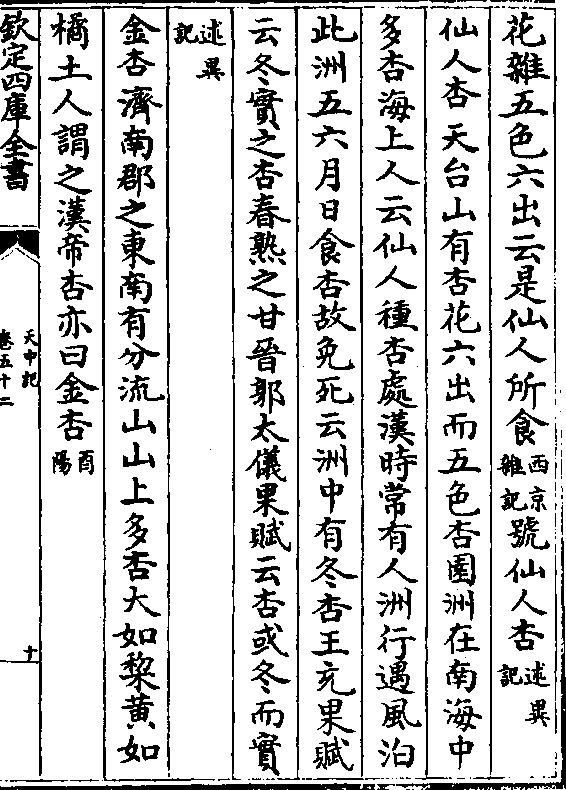 花雜五色六出云是仙人所食西京雜記號仙人杏述異記
仙人杏天台山有杏花六出而五色杏園洲在南海中
多杏海上人云仙人種杏處漢時常有人洲行遇風泊
此洲五六月日食杏故免死云洲中有冬杏王充果賦
云冬實之杏春熟之甘晉郭太儀果賦云杏或冬而實
述異記
金杏濟南郡之東南有分流山山上多杏大如棃黄如
橘土人謂之漢帝杏亦曰金杏酉陽
欽定四庫全書
天中記
卷五十二
十